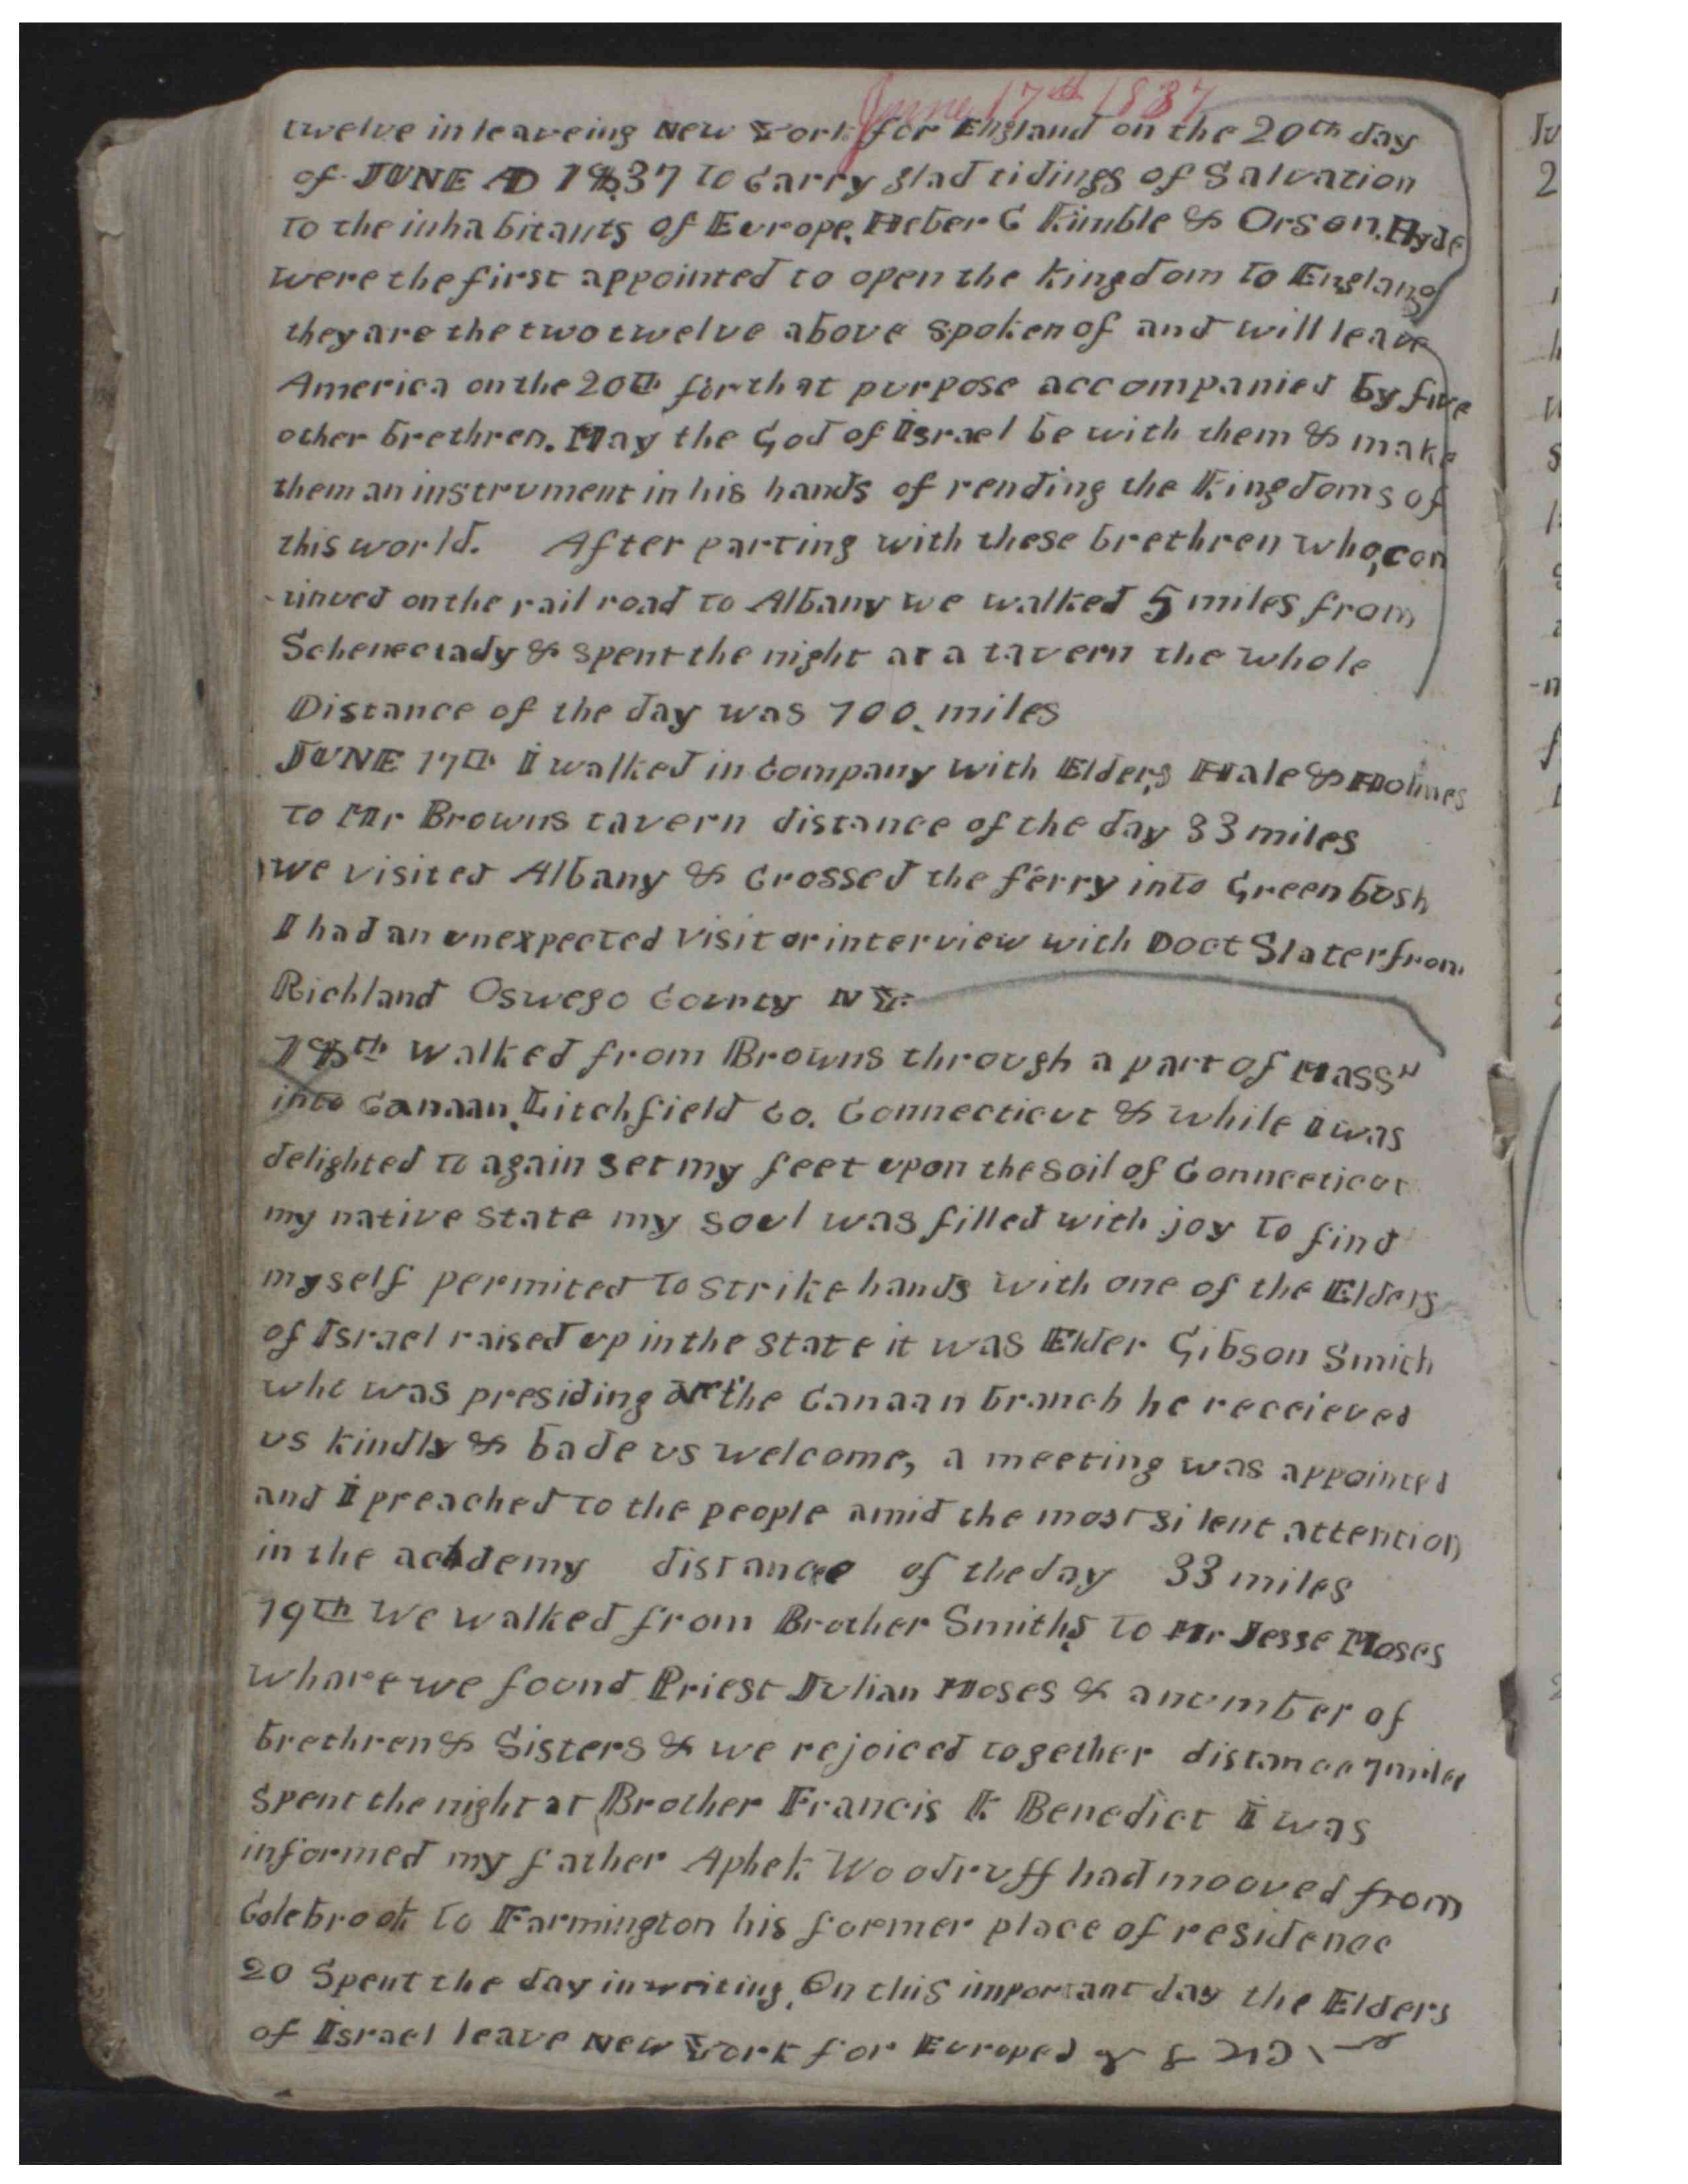 June 17th 1837
twelve in leaveing New York for England on the 20th day
of JUNE AD 1837 to Carry glad tidings of Salvation
to the inhabitants of Europe. Heber C Kimble & Orson. Hyde
were the first appointed to open the kingdom to England
they are the two twelve above spoken of and will leave
America on the 20th for that purpose accompanied by five
other brethren. May the God of Israel be with them & make
them an instrument in his hands of rending the Kingdoms of
this world. After parting with these brethren who, con
-tinued on the rail road to Albany we walked 5 miles from
Schenectady & spent the night at a tavern the whole
Distance of the day was 100. miles
JUNE 17th I walked in Company with Elders, Hale & Holmes
to Mr Browns tavern distance of the day 33 miles
we visited Albany & Crossed the ferry into Green bush
I had an unexpected visit or interview with Doct Slater from
Richland Oswego County NY.
18th walked from Browns through a part of Mass"
into Canaan, Litchfield Co. Connecticut & while I was
delighted to again set my feet upon the soil of Connecticut
my native state my soul was filled with joy to find
myself permited to strike hands with one of the Elders
of Israel raised up in the state it was Elder Gibson Smith
who was presiding over the Canaan branch he receieved
us kindly & bade us welcome, a meeting was appointed
and I preached to the people amid the most silent attention
in the academy distance of the day 33 miles
19th We walked from Brother Smiths, to Mr Jesse Moses
whare we found Priest Julian Moses & a number of
brethren & Sisters & we rejoiced together distance 7 miles
Spent the night at Brother Francis K Benedict I was
informed my father Aphek Woodruff had mooved from
Colebrook to Farmington his former place of residence
20 Spent the day in writing. On this important day the Elders
of Israel leave New York for Europed
Ju
2